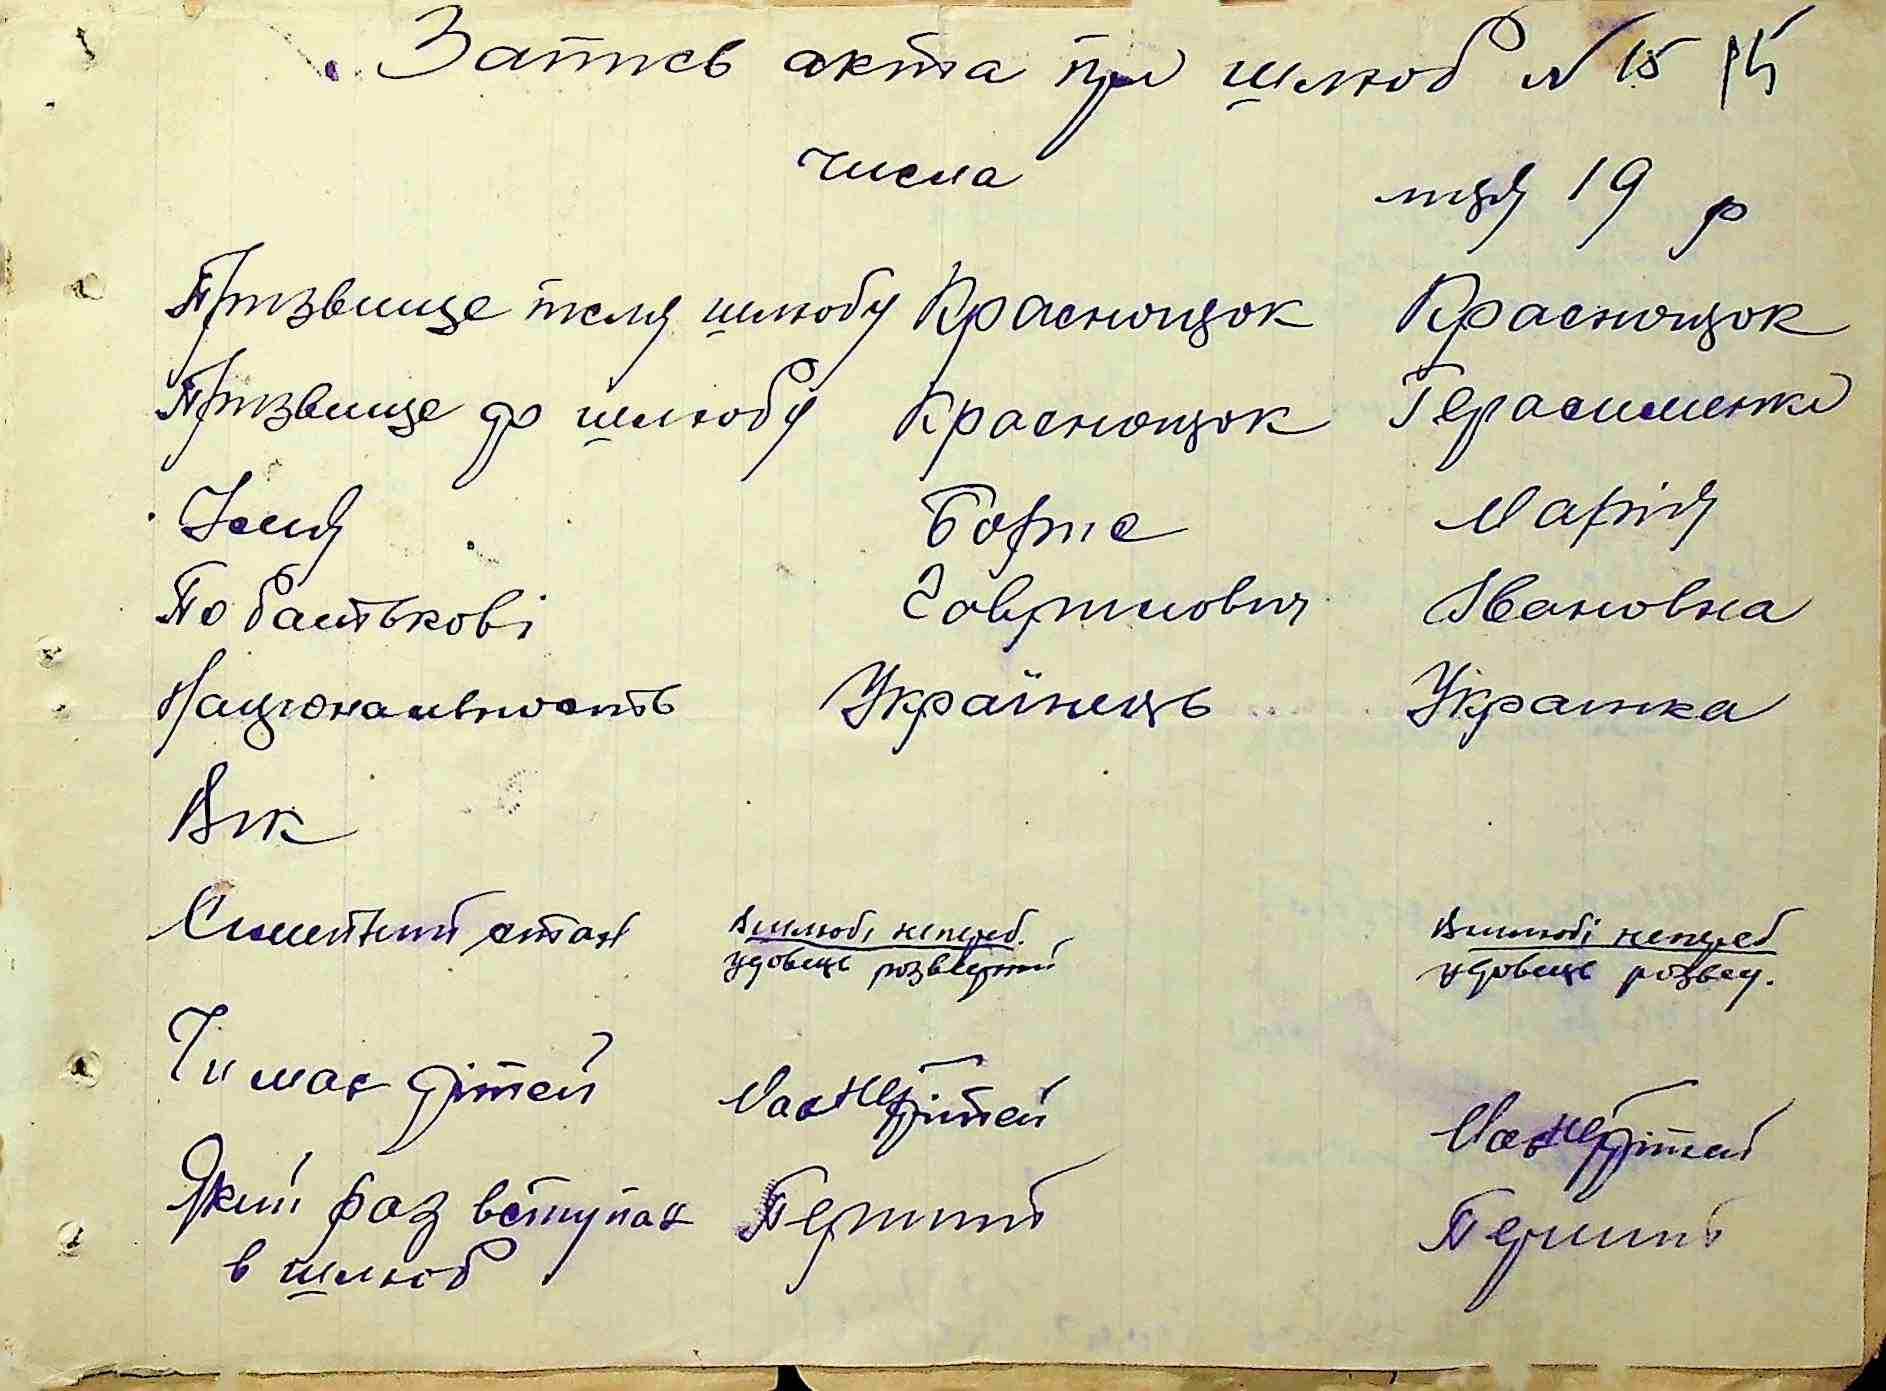 Запись акта при шлюб N 15
числа мця 19 р
Призвище писля шлюбу Краснощок Краснощок
Призвище до шлюбу Краснощок Герасименко
Імя Борис Марія
По батькові Гаврилович Івановна
Национальность Українець Українка
Вік
Симейний стан В шлюбі непереб. В шлюбі непереб
удовець розведений удовець розвед.
Чи має дітей Має не дітей Має не дітей
Який раз вступає Перший Перший
в шлюб